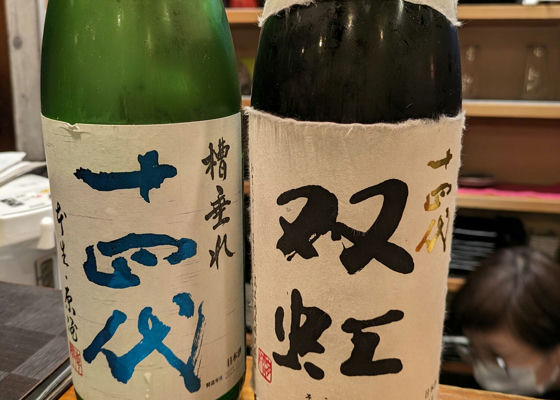 槽垂れ
十四代
本生 原酒
日本酒
十四代
双虹